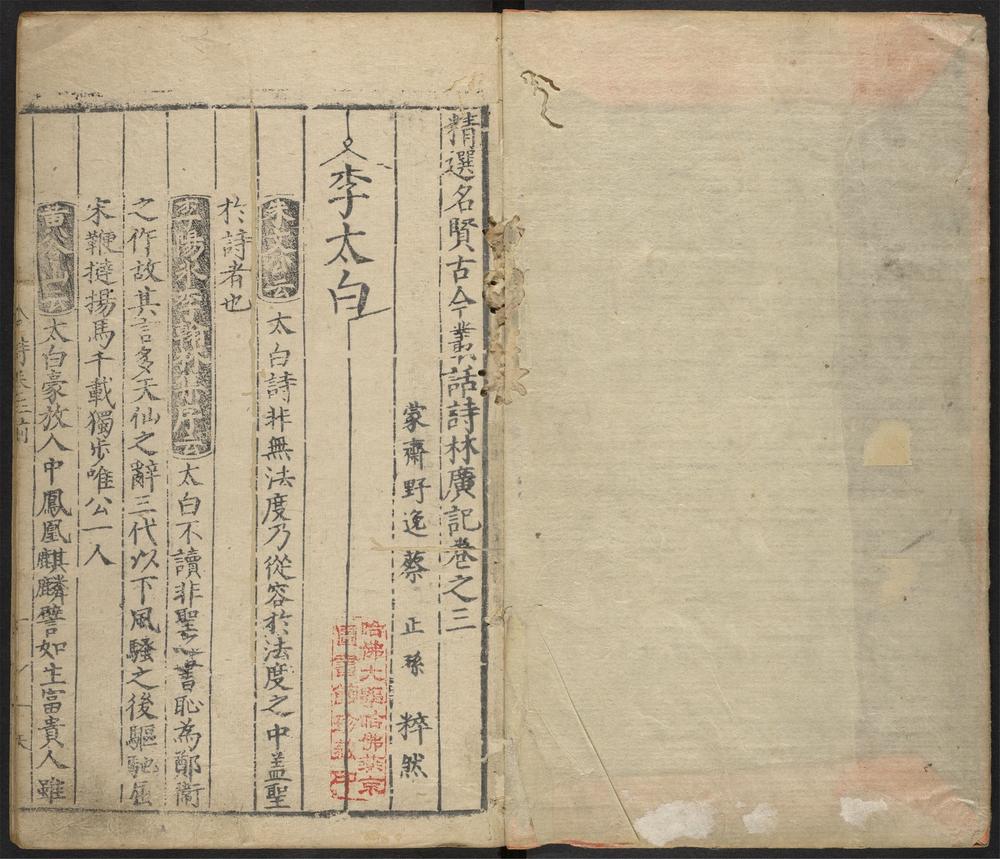 精選名賢古今叢話詩林廣記卷之三
蒙齋野逸蔡正孫粹然
李太白
朱文公云太白詩非無法度乃從容於法度之中盖聖
於詩者也
李陽冰云太白不讀非聖之書恥為鄭衛
之作故其言多天仙之辭三代以下風騷之後驅馳屈
宋鞭撻揚馬千載獨步唯公一人
黄山谷云太白豪放人中鳳凰麒麟譬如生富貴人雖
哈佛大學哈佛燕京
圖書館珍藏印